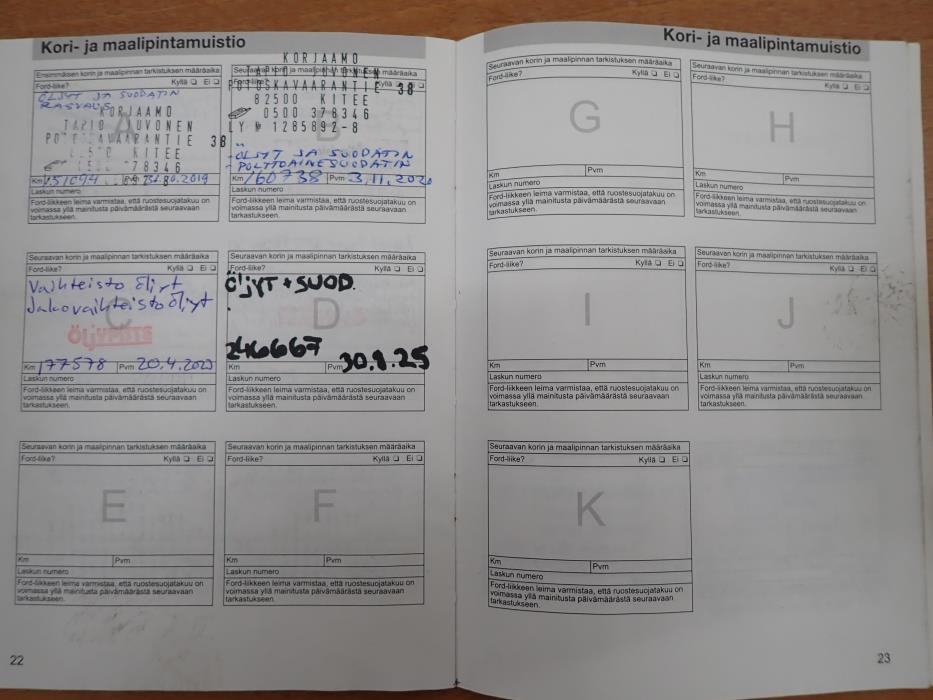 Kori- ja maalipintamuistio
Ensimmäisen korin ja maalipinnan tarkistuksen määräaika
Ford-liike? Kyllä ❏ Ei ❏
ÖLJYT JA SUODATIN
RASVAUS
KORJAAMO
TAPIO AUVONEN
38
KITEE
78346
Km 151094 Pvm 2019
Laskun numero
Ford-liikkeen leima varmistaa, että ruostesuojatakuu on
voimassa yllä mainitusta päivämäärästä seuraavaan
tarkastukseen.
KORJAAMO
POTOSKAVAARANTIE 38
82500 KITEE
0500 378346
LY № 1285892-8
-ÖLJYT JA SUODATIN
-POLTTOAINESUODATIN
Km 160738 Pvm 3.11.2020
Laskun numero
Ford-liikkeen leima varmistaa, että ruostesuojatakuu on
voimassa yllä mainitusta päivämäärästä seuraavaan
tarkastukseen.
Seuraavan korin ja maalipinnan tarkistuksen määräaika
Ford-liike? Kyllä ❏ Ei ❏
C
Vaihteisto öljyt
Jakovaihteisto öljyt
ÖljyPISTE
Km 177578 Pvm 20.4.2023
Laskun numero
Ford-liikkeen leima varmistaa, että ruostesuojatakuu on
voimassa yllä mainitusta päivämäärästä seuraavaan
tarkastukseen.
Seuraavan korin ja maalipinnan tarkistuksen määräaika
Ford-liike? Kyllä ❏ Ei ❏
ÖLJYT + SUOD.
D
246667
Km Pvm 30.8.25
Laskun numero
Ford-liikkeen leima varmistaa, että ruostesuojatakuu on
voimassa yllä mainitusta päivämäärästä seuraavaan
tarkastukseen.
Seuraavan korin ja maalipinnan tarkistuksen määräaika
Ford-liike? Kyllä ❏ Ei ❏
E
Km Pvm
Laskun numero
Ford-liikkeen leima varmistaa, että ruostesuojatakuu on
voimassa yllä mainitusta päivämäärästä seuraavaan
tarkastukseen.
Seuraavan korin ja maalipinnan tarkistuksen määräaika
Ford-liike? Kyllä ❏ Ei ❏
F
Km Pvm
Laskun numero
Ford-liikkeen leima varmistaa, että ruostesuojatakuu on
voimassa yllä mainitusta päivämäärästä seuraavaan
tarkastukseen.
22
Kori- ja maalipintamuistio
Seuraavan korin ja maalipinnan tarkistuksen määräaika
Ford-liike? Kyllä ❏ Ei ❏
G
Km Pvm
Laskun numero
Ford-liikkeen leima varmistaa, että ruostesuojatakuu on
voimassa yllä mainitusta päivämäärästä seuraavaan
tarkastukseen.
Seuraavan korin ja maalipinnan tarkistuksen määräaika
Ford-liike? Kyllä ❏ Ei ❏
H
Km Pvm
Laskun numero
Ford-liikkeen leima varmistaa, että ruostesuojatakuu on
voimassa yllä mainitusta päivämäärästä seuraavaan
tarkastukseen.
Seuraavan korin ja maalipinnan tarkistuksen määräaika
Ford-liike? Kyllä ❏ Ei ❏
I
Km Pvm
Laskun numero
Ford-liikkeen leima varmistaa, että ruostesuojatakuu on
voimassa yllä mainitusta päivämäärästä seuraavaan
tarkastukseen.
Seuraavan korin ja maalipinnan tarkistuksen määräaika
Ford-liike? Kyllä ❏ Ei ❏
J
Km Pvm
Laskun numero
Ford-liikkeen leima varmistaa, että ruostesuojatakuu on
voimassa yllä mainitusta päivämäärästä seuraavaan
tarkastukseen.
Seuraavan korin ja maalipinnan tarkistuksen määräaika
Ford-liike? Kyllä ❏ Ei ❏
K
Km Pvm
Laskun numero
Ford-liikkeen leima varmistaa, että ruostesuojatakuu on
voimassa yllä mainitusta päivämäärästä seuraavaan
tarkastukseen.
23